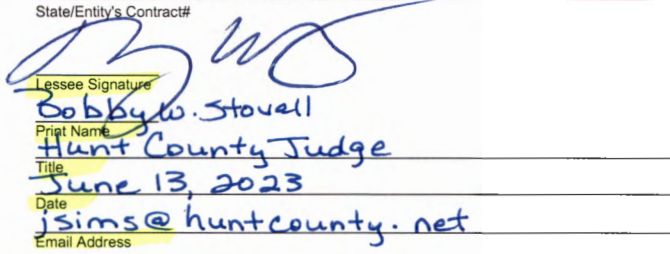 State/Entity's Contract#
Lessee Signature
Bobby W. Stovall
Print Name
Hunt County Judge
Title
June 13, 2023
Date
jsims@huntcounty.net
Email Address